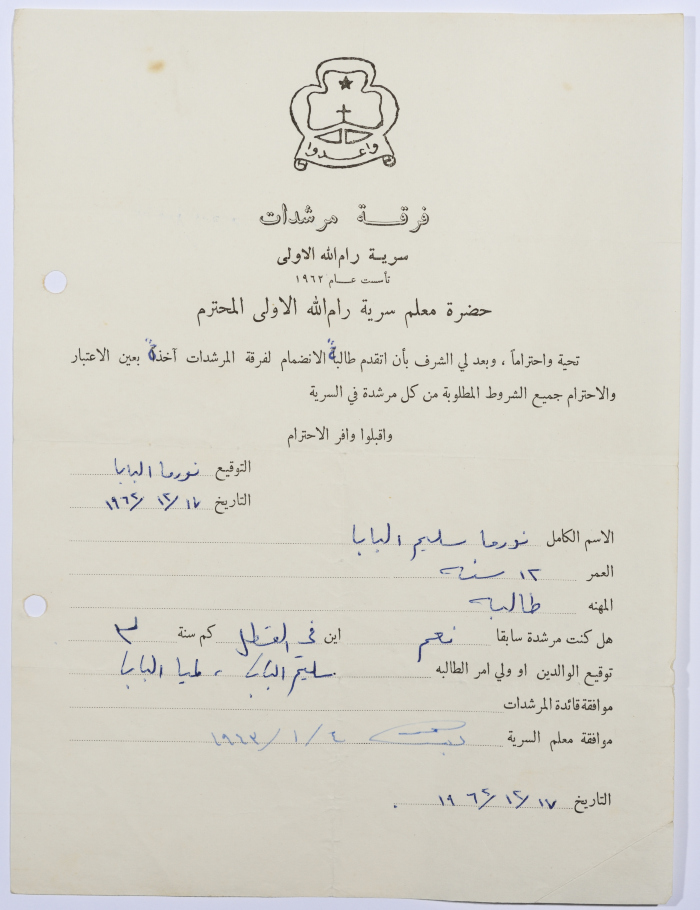 واعدوا
فرقة مرشدات
سرية رام الله الاولى
تأست عام ١٩٦٢
حضرة معلم سرية رام الله الاولى المحترم
تحية واحتراماً ، وبعد لي الشرف بأن اتقدم طالبةً الانضمام لفرقة المرشدات آخذةً بعين الاعتبار
والاحترام جميع الشروط المطلوبة من كل مرشدة في السرية
واقبلوا وافر الاحترام
التوقيع نورما البابا
التاريخ ١٧ / ١٢ / ١٩٦٢
الاسم الكامل نورما سليم البابا
العمر ١٢ سنه
المهنه طالبه
هل كنت مرشدة سابقا نعم اين في كم سنة
توقيع الوالدين او ولي امر الطالبه سليم البابا ، لميا البابا
موافقة قائدة المرشدات
موافقة معلم السرية ٤ / ١ / ١٩٦٣
التاريخ ١٧ / ١٢ / ١٩٦٢